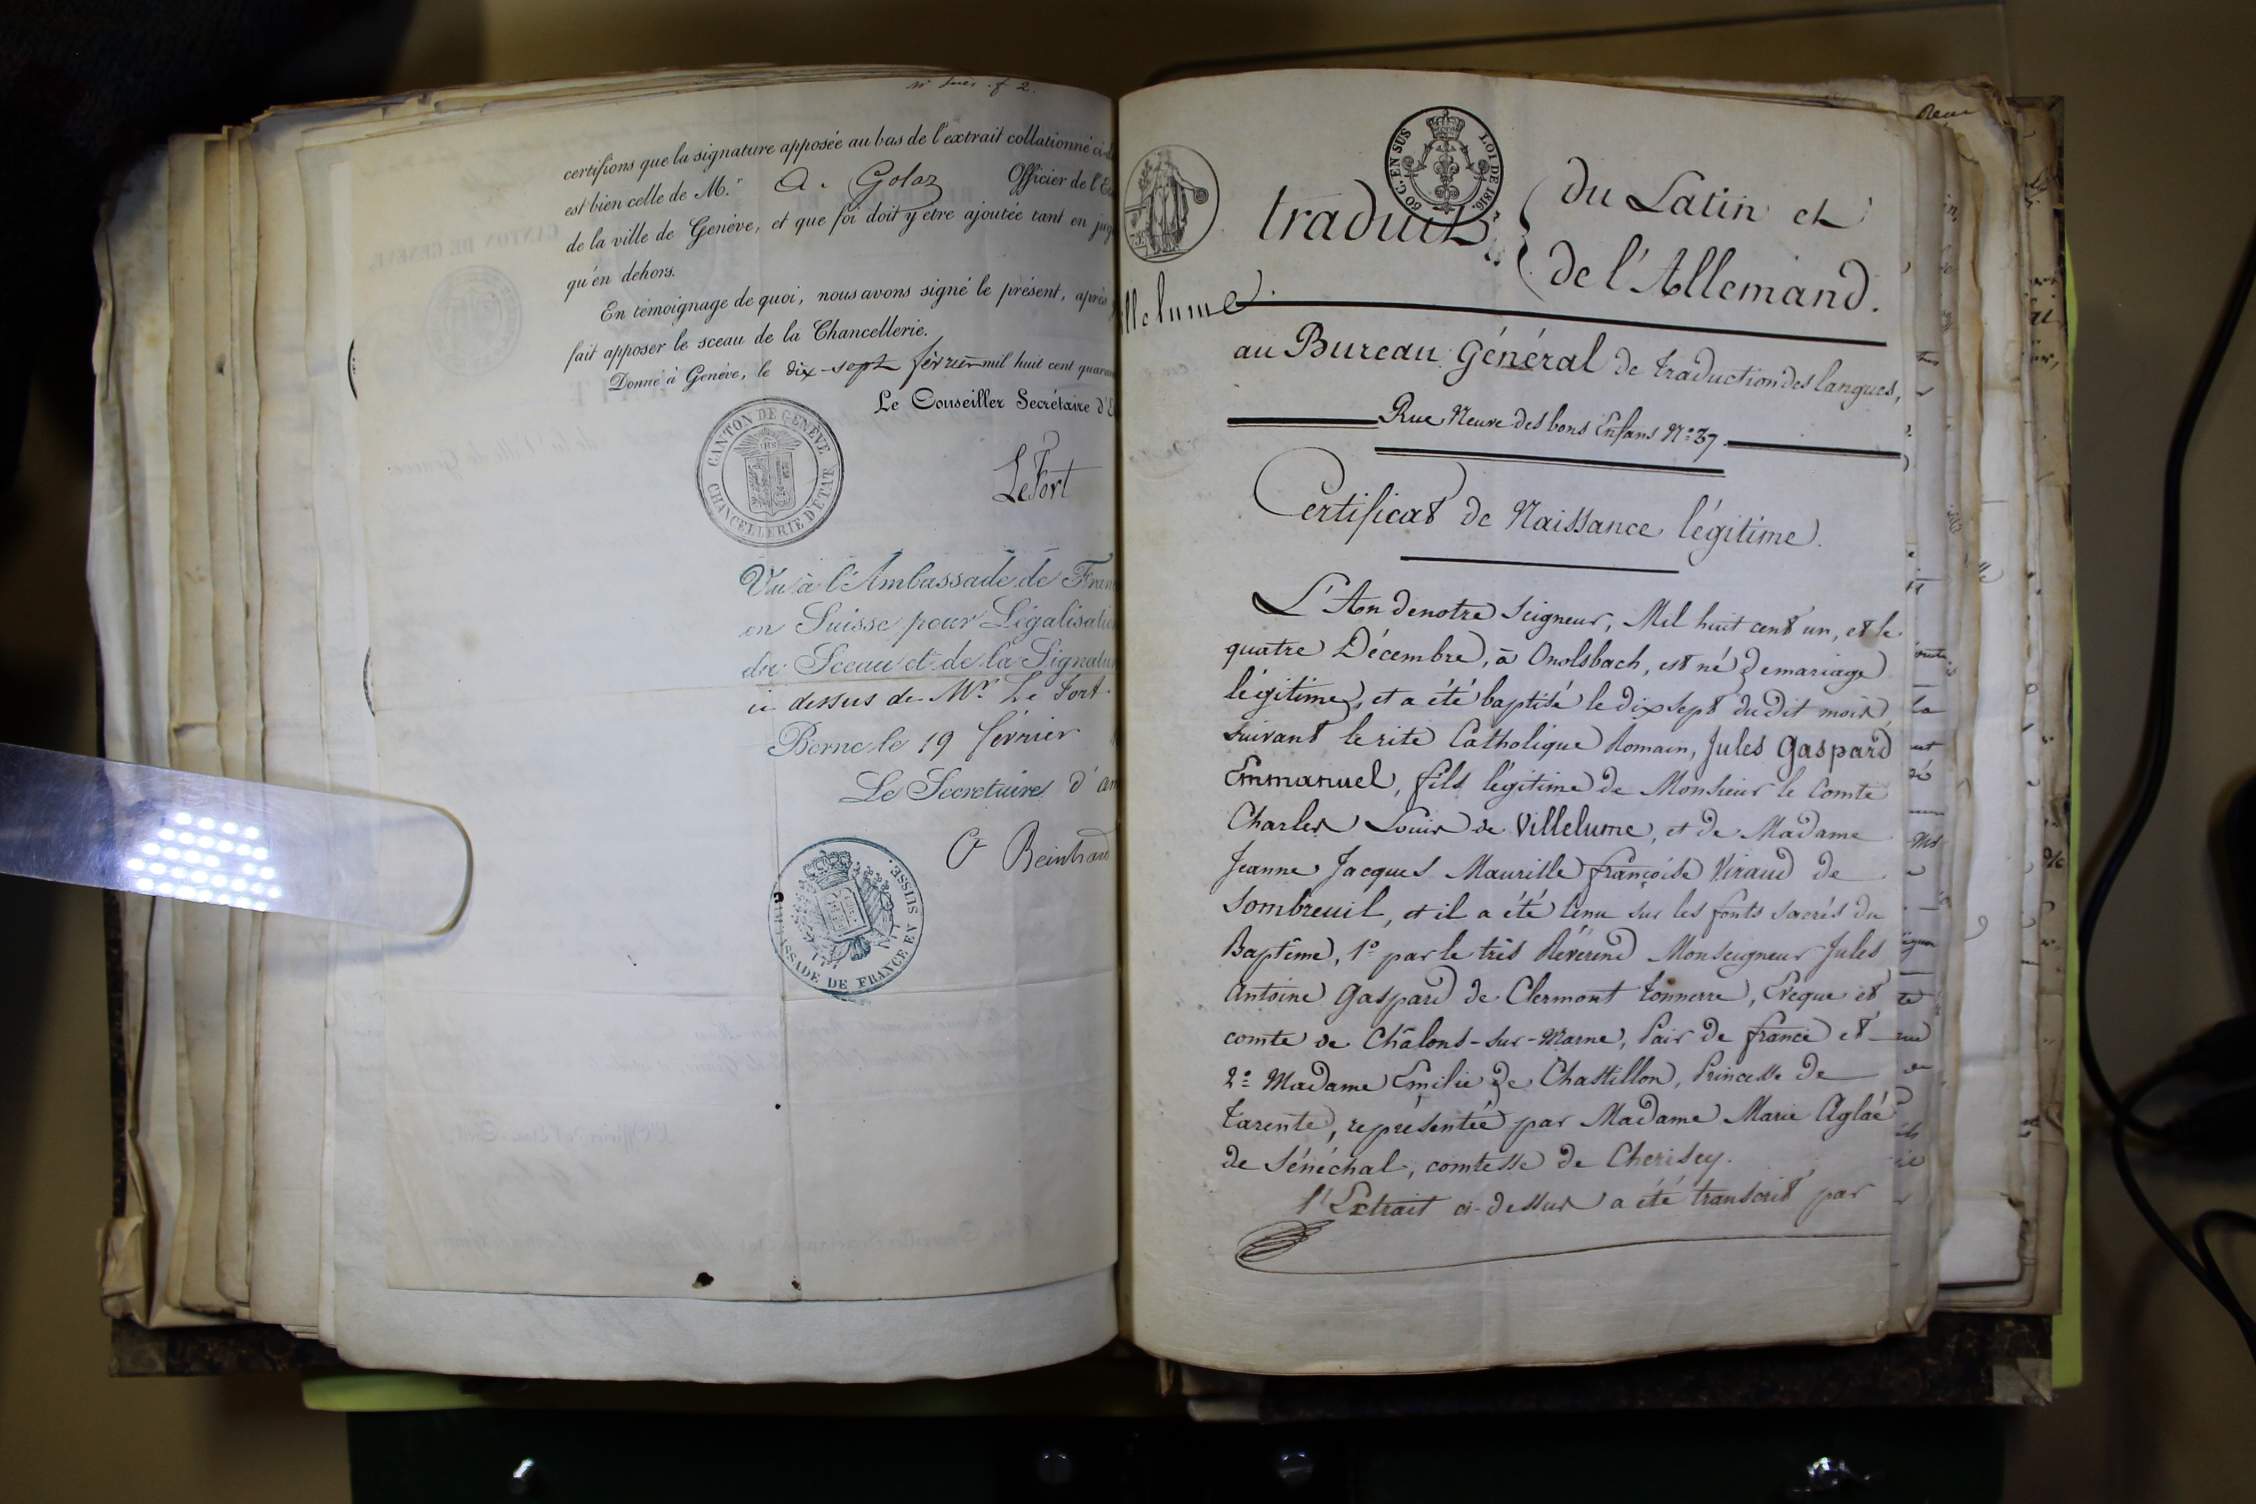 certifions que la signature apposée au bas de l'extrait collationné ci-d
est bien celle de M.r A. Golaz Officier de l'E
de la ville de Genève, et que foi doit y etre ajoutée tant en jug
qu'en dehors.
En témoignage de quoi, nous avons signé le présent, après
fait apposer le sceau de la Chancellerie.
Donné à Genève, le dix-sept février mil huit cent quaran
Le Conseiller Secrétaire d'E
CANTON DE GENÈVE
CHANCELLERIE D'ÉTAT
LeFort
Vu à l'Ambassade de Fran
en Suisse pour Légalisatio
du Sceau et de la Signatu
ci dessus de Mr. Le Fort.
Berne le 19 février
Le Secretaire d'am
AMBASSADE DE FRANCE EN SUISSE.
50 C. EN SUS LOI DE 1816.
traduit du Latin et
de l'Allemand.
llelume.
au Bureau Général de traduction des langues,
Rue Neuve des bons Enfans N.o 37.
Certificat de Naissance légitime.
L'An de notre Seigneur, Mil huit cent un, et le
quatre Décembre, à Onolsbach, est né de mariage
légitime, et a été baptisé le dix sept du dit mois
suivant le rite Catholique Romain, Jules Gaspard
Emmanuel, fils légitime de Monsieur le Comte
Charles Louis de Villelume, et de Madame
Jeanne Jacques Maurille françoise Viraud de
Sombreuil, et il a été tenu sur les fonts sacrés du
Baptême, 1.o par le très Révérend Monseigneur Jules
Antoine Gaspard de Clermont tonnerre, Evêque et
comte de Châlons-sur-Marne, Pair de france et
2.o Madame Emilie de Chastillon, Princesse de
tarente, représentée par Madame Marie Aglaé
de Sénéchal, comtesse de Cherisey.
l'Extrait ci-dessus a été transcrit par